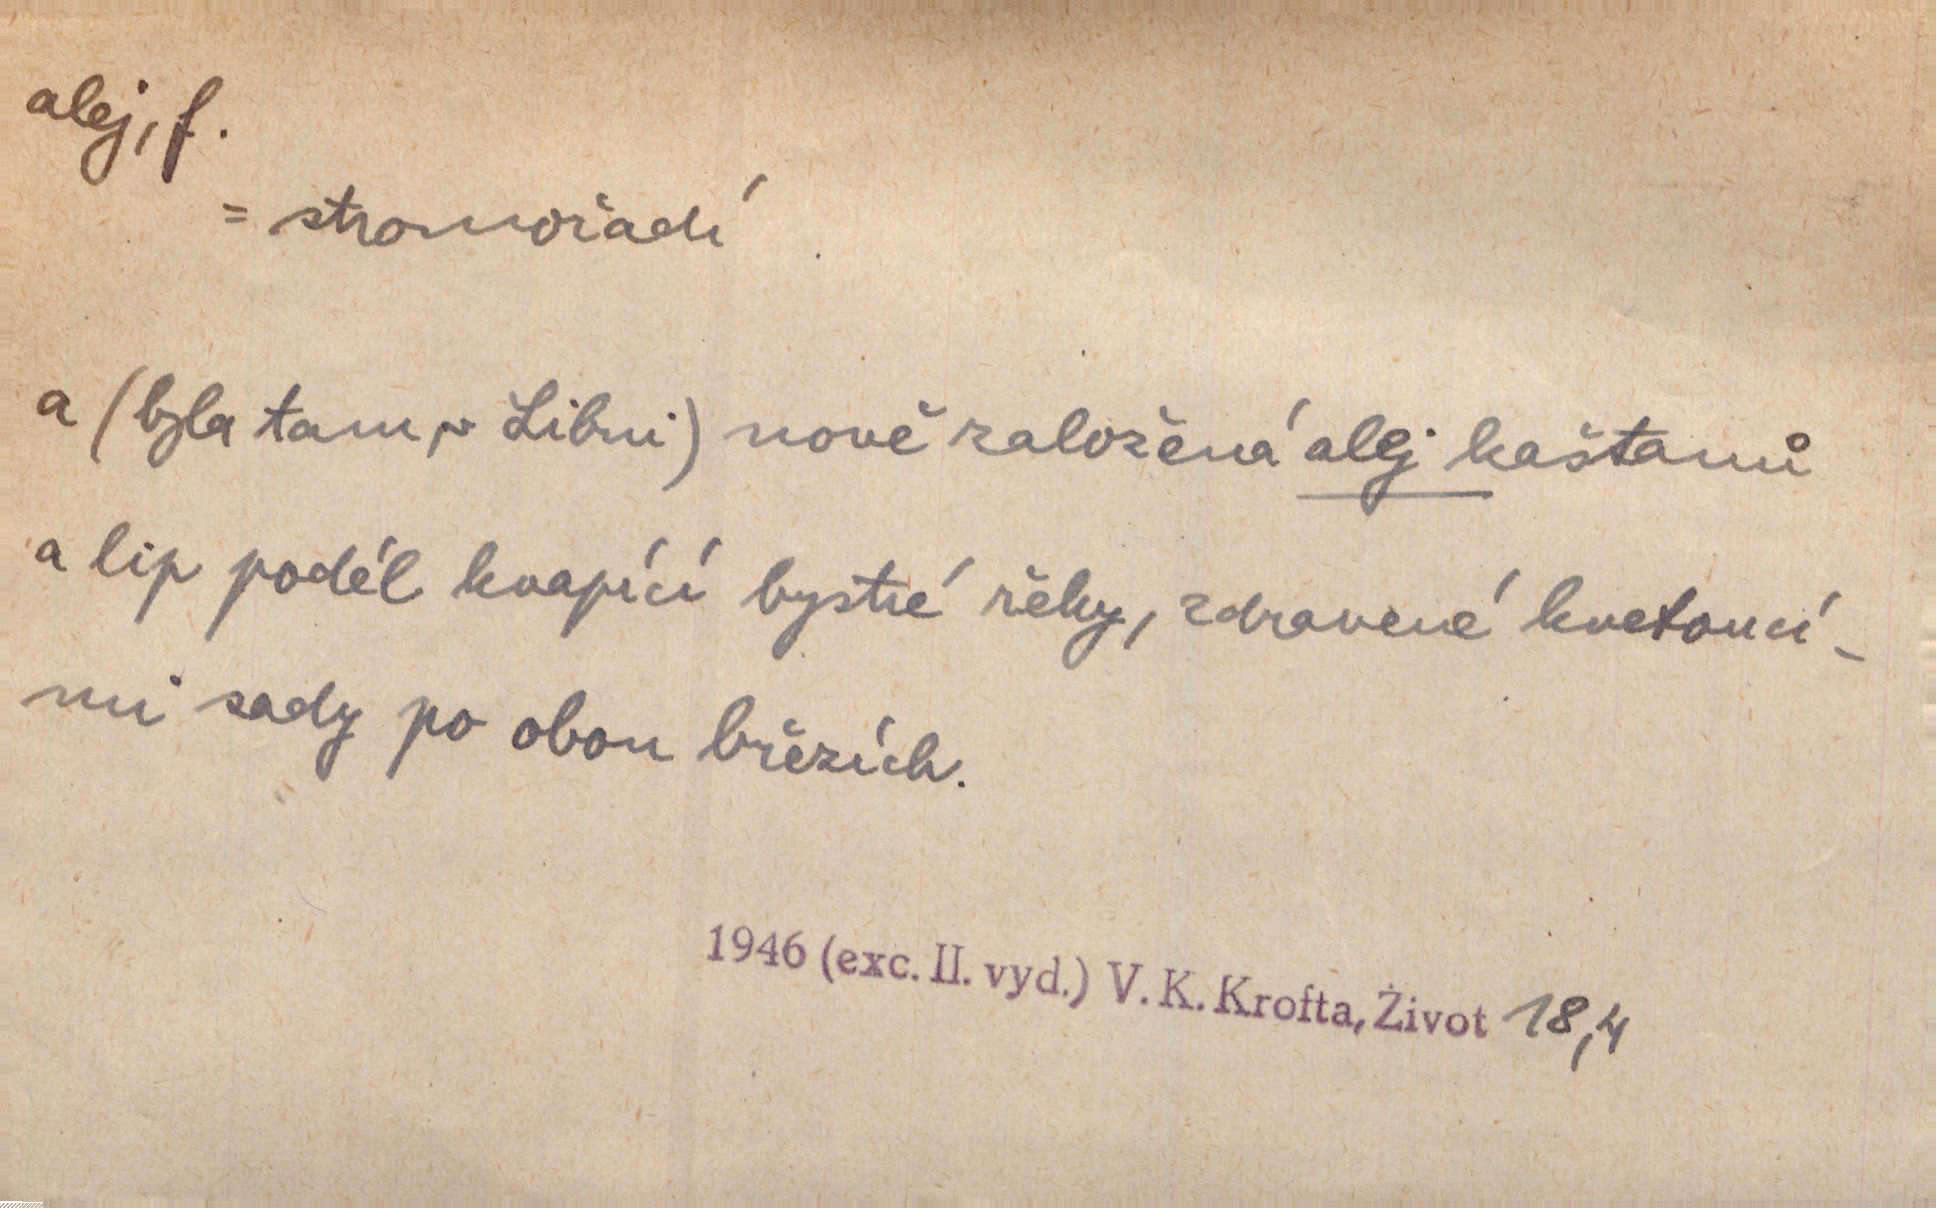 alej, f.
= stromořadí
a (byla tam, v Libni) nově založená alej kaštanů
a lip podél kvapící bystré řeky, zdravené kvetoucí-
mi sady po obou březích.
1946 (exc. II. vyd.) V. K. Krofta, Život 18,4